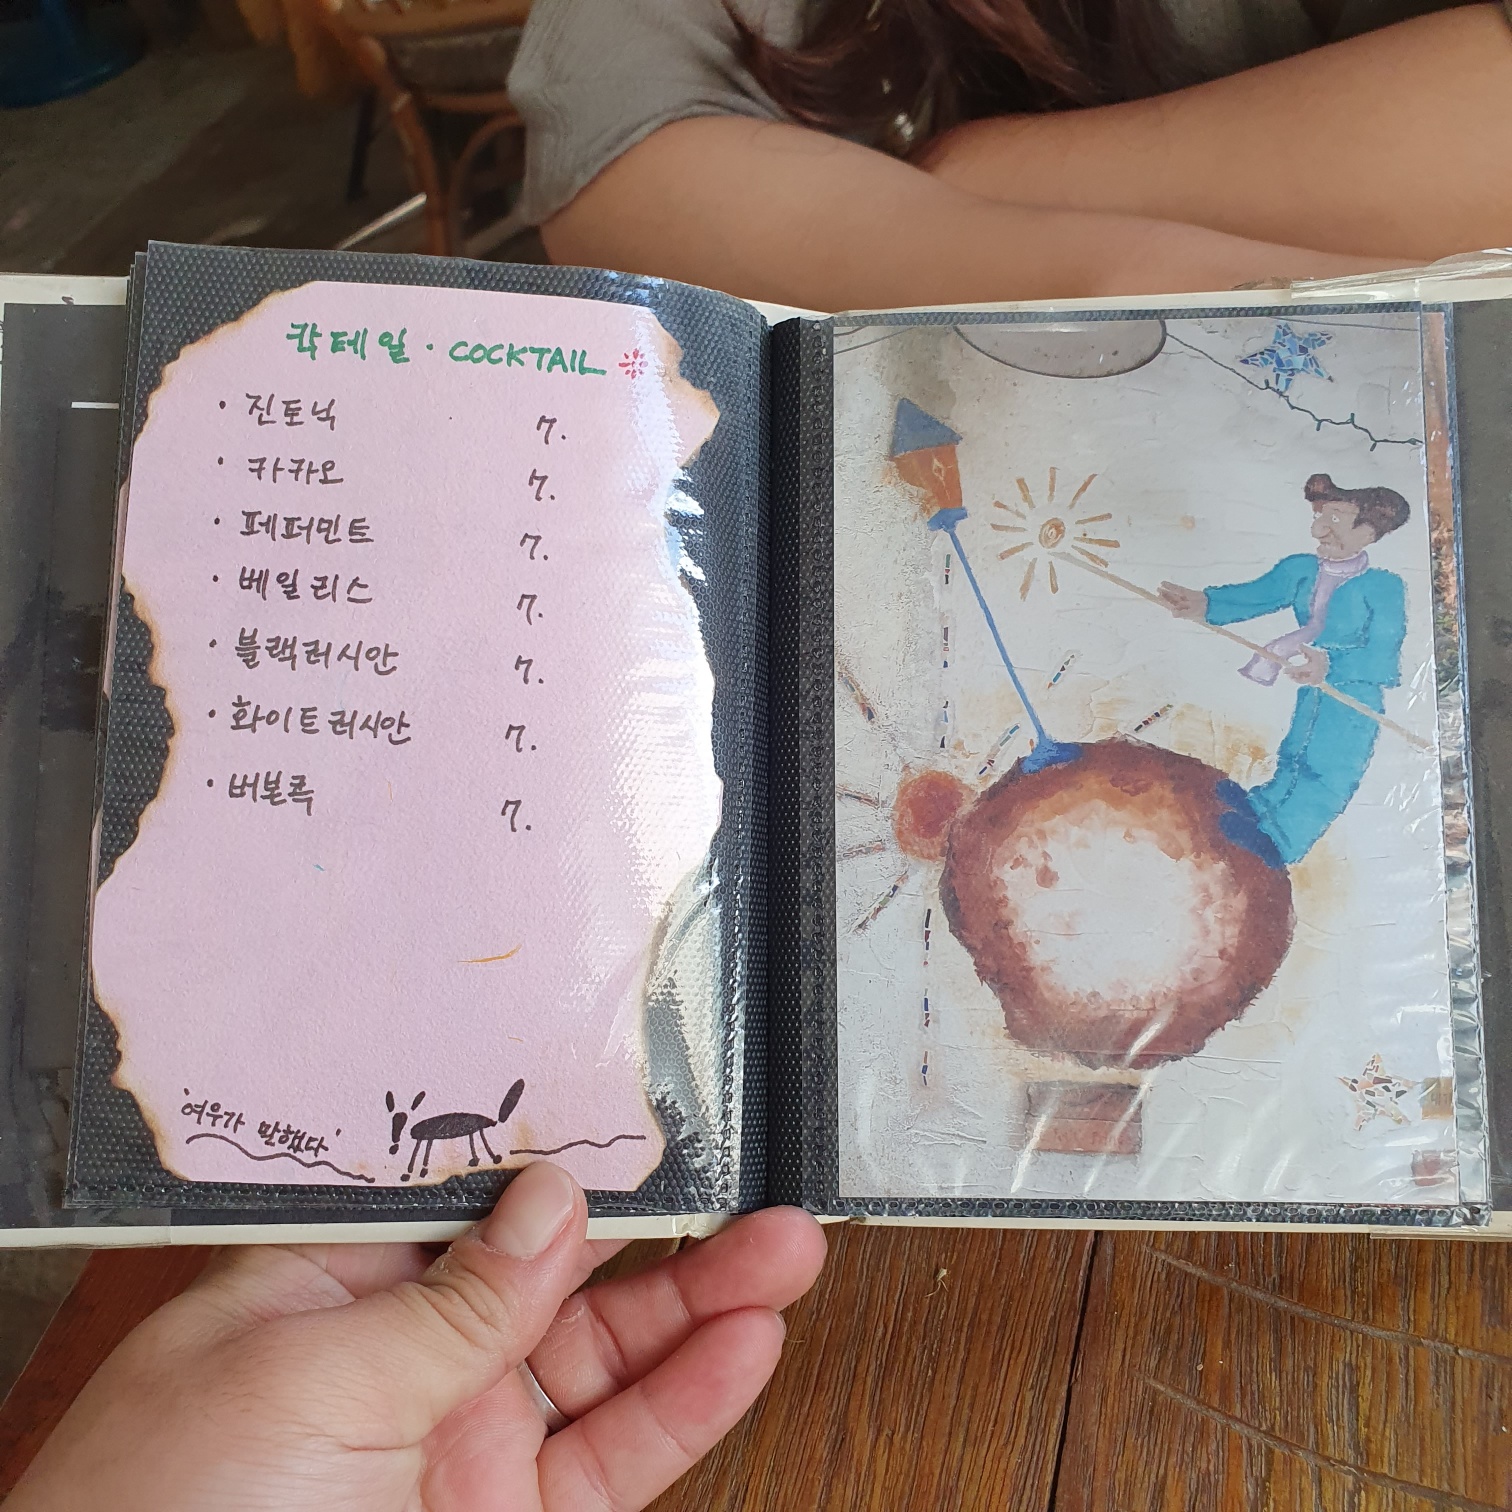 칵테일 · COCKTAIL
· 진토닉 7.
· 카카오 7.
· 페퍼민트 7.
· 베일리스 7.
· 블랙러시안 7.
· 화이트러시안 7.
· 버본콕 7.
'여우가 말했다'